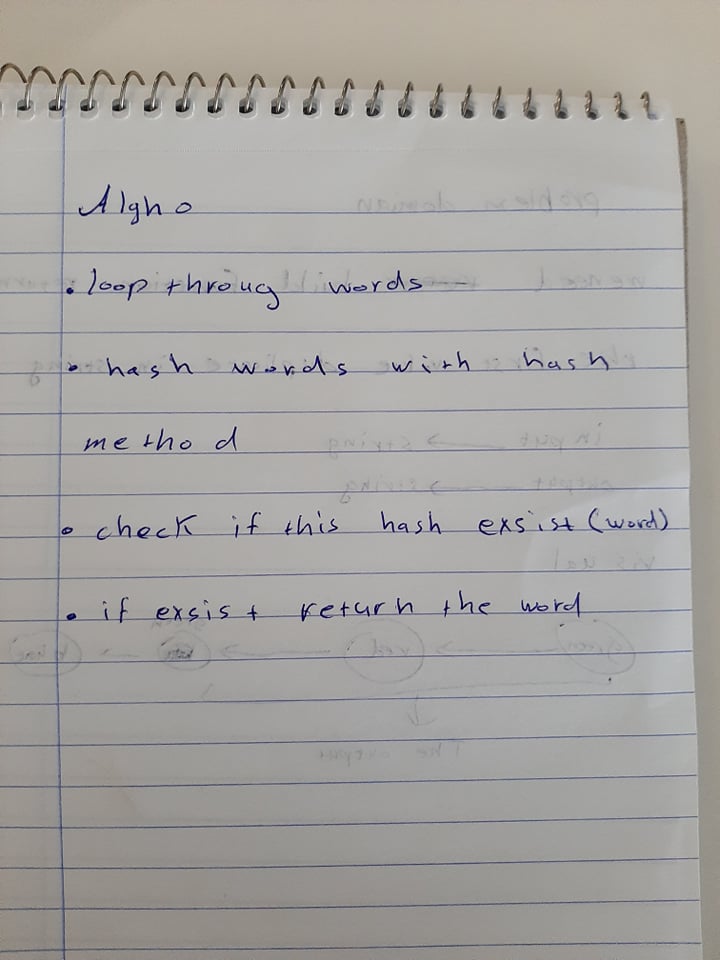 Algho
• loop throug words
• hash words with hash
method
• check if this hash exsist (word)
• if exsist return the word